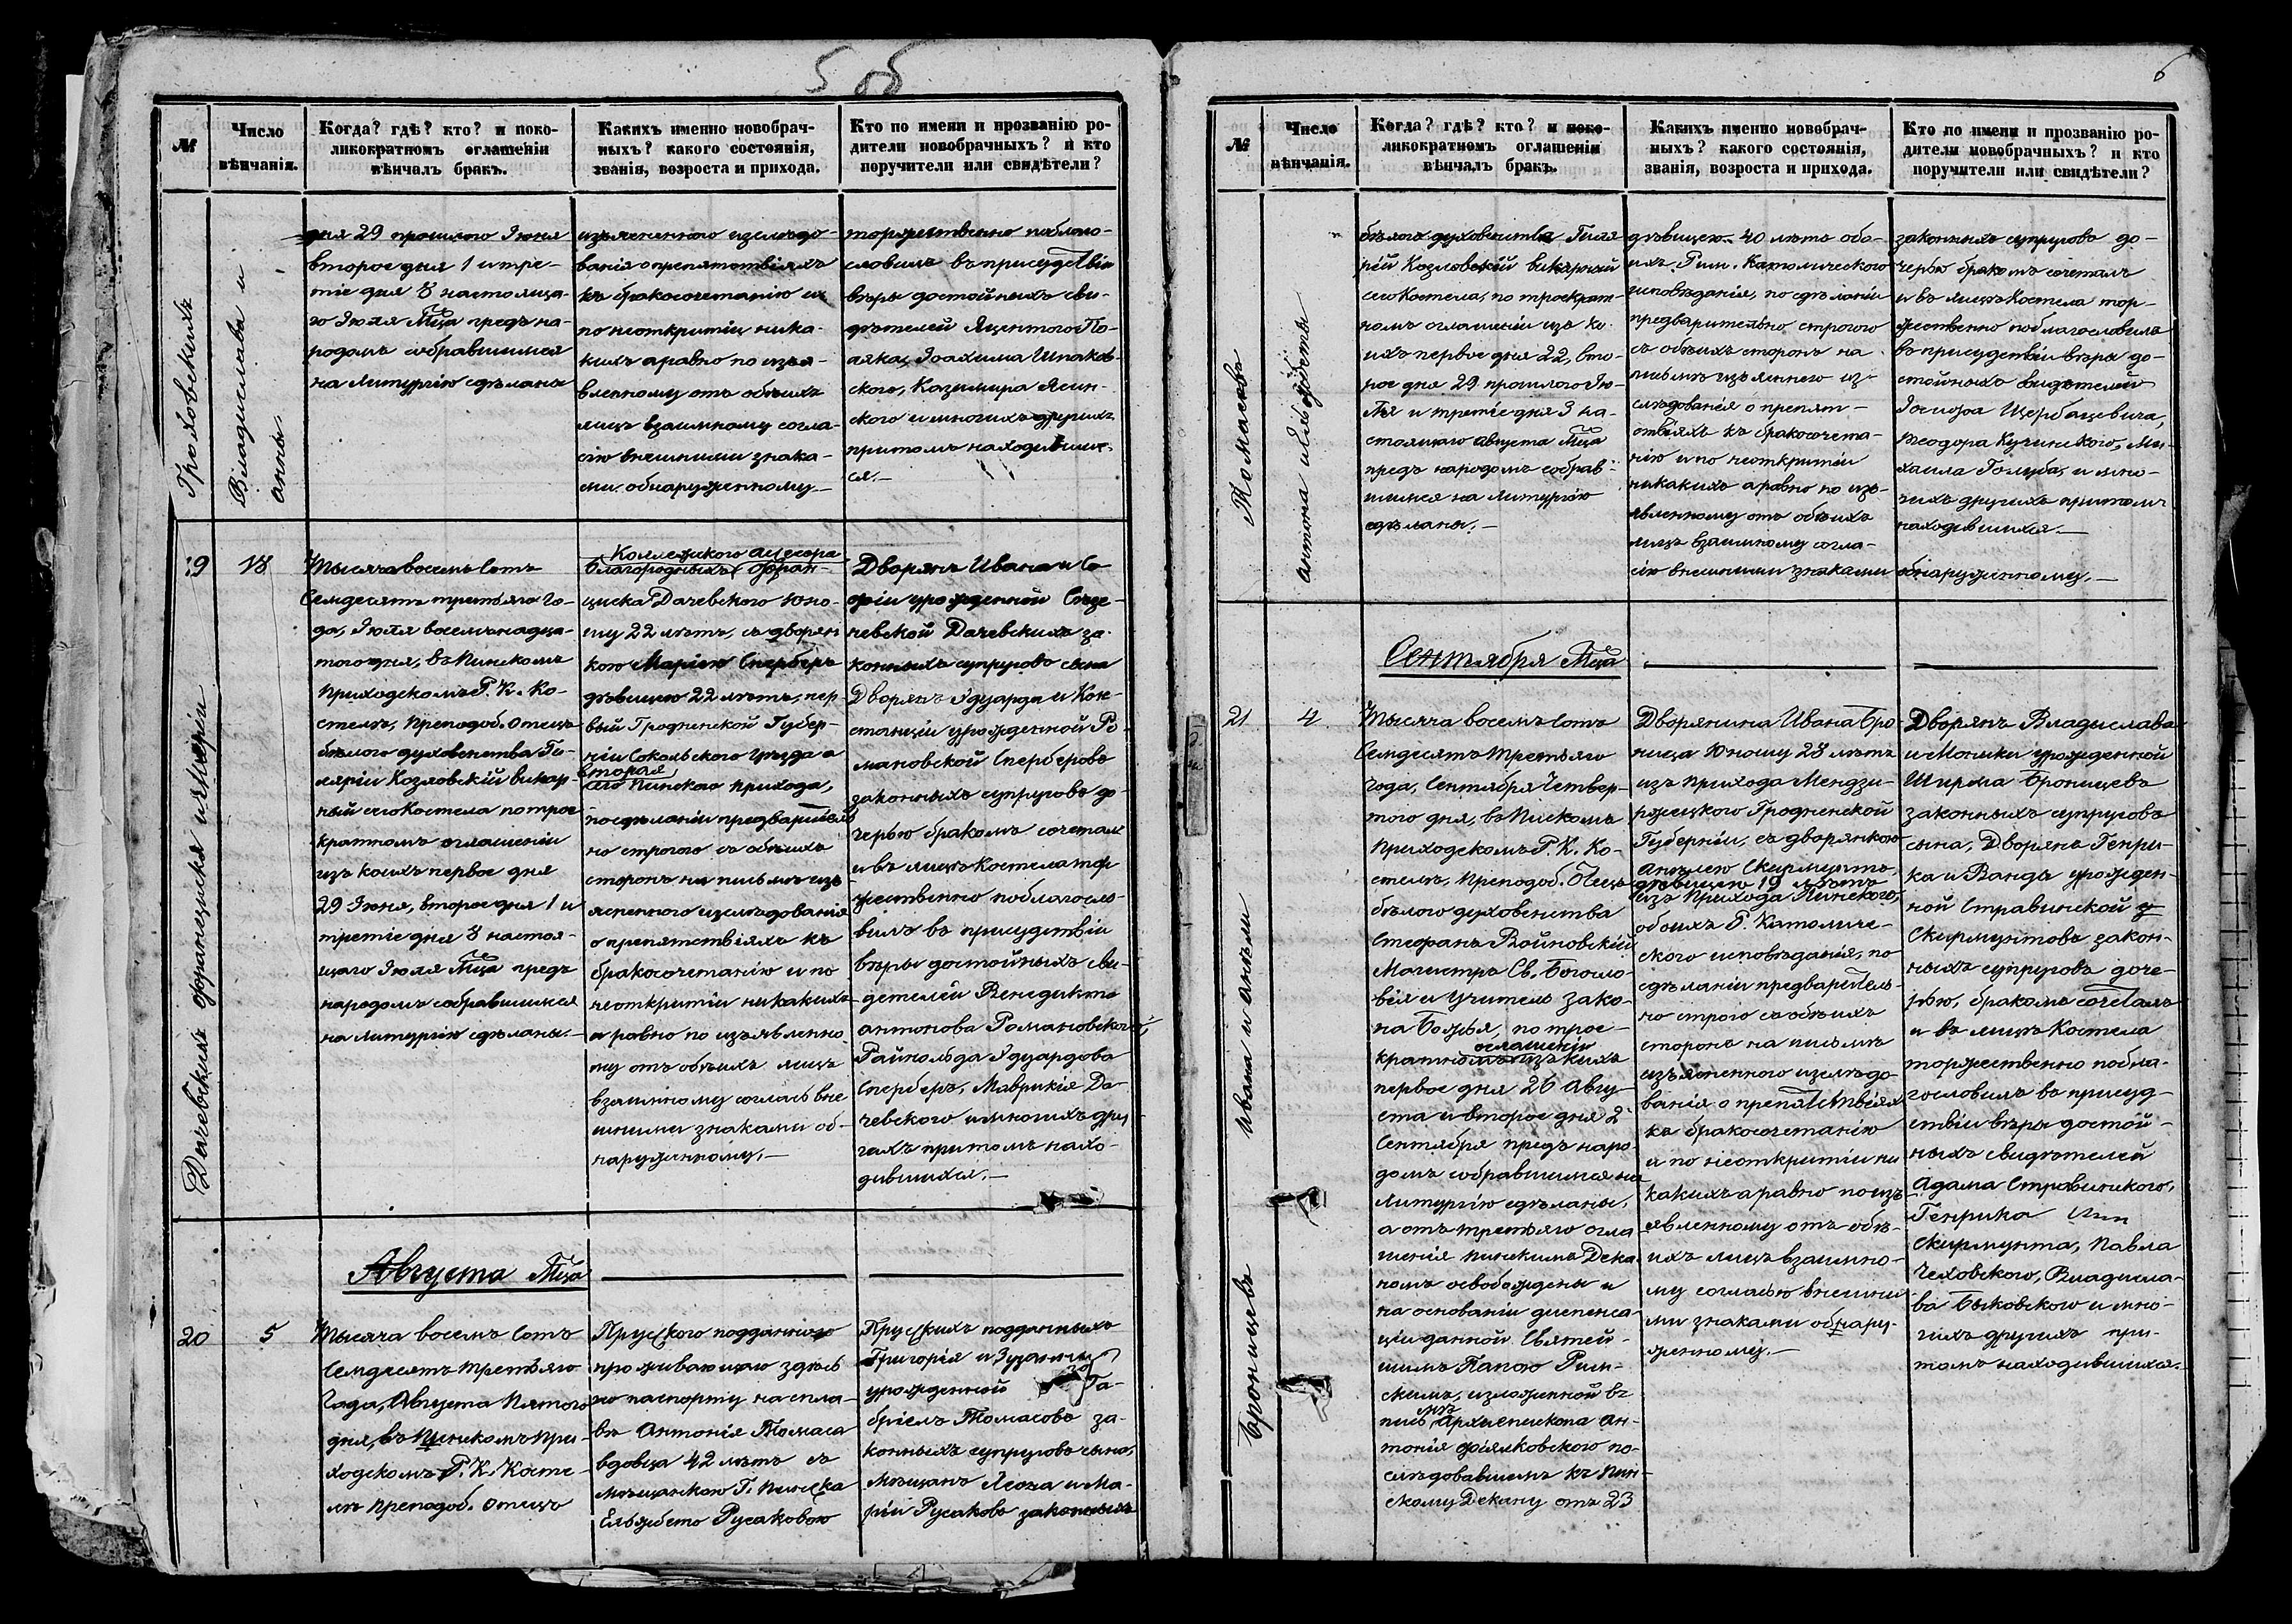 5 об
№
Число
вѣнчанія.
Когда? гдѣ? кто? и поко-
ликократномъ оглашеніи
вѣнчалъ бракъ.
Какихъ именно новобрач-
ныхъ? какого состоянія,
званія, возроста и прихода.
Кто по имени и прозванію ро-
дители новобрачныхъ? и кто
поручители или свидѣтели?
Гроховскихъ
Владислава и
анны
дня 29 прошлого Іюня
второе дня 1 и тре-
тіе дня 8 настояща-
го Іюля Мца предъ на-
родомъ собравшимся
на литургію сдѣланы
изъясненного изслѣдо-
ванія о препятствіяхъ
къ бракосочетанію и
по неоткрытіи ника-
кихъ а равно по изъя-
вленному отъ обоихъ
лицъ взаимному согла-
сію внѣшними знака-
ми обнаруженному
торжественно поблаго-
словилъ въ присудствіи
вѣры достойныхъ сви-
дѣтелей Яцентого По-
аяка, Іоахима Шпаков-
ского, Казимира Ясин-
ского и многихъ другихъ
притомъ находивших-
ся.
19
18
Дачевскихъ франциска и Маріи
Тысяча восемь сотъ
Семдесятъ третьяго го-
да, Іюля восемьнадца-
того дня, въ Пинскомъ
Приходскомъ Р. К. Ко-
стелѣ, Преподоб. Отецъ
бѣлого духовенства Ги-
лярій Козловскій викар-
ный сего Костела по трое
кратномъ оглашеніи
изъ коихъ первое дня
29 Іюня, второе дня 1 и
третіе дня 8 настоя-
щаго Іюля Мца предъ
народомъ собравшимся
на литургію сдѣланы.
Коллежского ацесора
благородныхъ фран-
циска Дачевского юно-
шу 22 лѣтъ, съ дворян
кою Маріею Сперберъ
дѣвицею 22 лѣтъ, пер-
вый Гродненской Губер-
ніи Сокольского уѣзда а
вторая
сего Пинского прихода,
по сдѣланіи предварительно
но строгого съ обоихъ
сторонъ на письмѣ изъ
ясненного изслѣдованія
о препятствіяхъ къ
бракосочетанію и по
неоткрытіи никакихъ
а равно по изъявленно
му отъ обоихъ лицъ
взаимному согласію внѣ
шними знаками об-
наруженному.
Дворянъ Ивана и Со
фіи урожденной Сще-
невской Дачевскихъ за-
конныхъ супруговъ сына
Дворянъ Эдуарда и Кон-
станціи урожденной Ро-
мановской Сперберовъ
законныхъ супруговъ до-
черью бракомъ сочеталъ
и въ лицѣ Костела тор
жественно поблагосло-
вилъ въ присудствіи
вѣры достойныхъ сви-
детелей Венедикта
антонова Романовского
Райнольда Эдуардова
Сперберъ, Маврикія Да-
чевского и многихъ дру
гихъ притомъ нахо-
дившихся.
Августа Мца
20
5
Тысяча восемь сотъ
Семдесятъ третьяго
Года, Августа Пятого
дня, въ Пинскомъ При-
ходскомъ Р. К. Косте-
лѣ Преподоб. Отецъ
Пруского подданного
проживающаго здѣсь
по паспорту на спла-
вѣ Антонія Томаса
вдовца 42 лѣтъ съ
мѣщанкою Г. Пинска
Ельжбетою Русаковою
Прускихъ подданныхъ
Григорія и Зузанны
урожденной Га-
бріелъ Томасовъ за-
конныхъ супруговъ сына,
мѣщанъ Леона и Ма-
ріи Русаковъ законныхъ
6
№
Число
вѣнчанія.
Когда? гдѣ? кто? и поко-
ликократномъ оглашеніи
вѣнчалъ бракъ.
Какихъ именно новобрач-
ныхъ? какого состоянія,
званія, возроста и прихода.
Кто по имени и прозванію ро-
дители новобрачныхъ? и кто
поручители или свидѣтели?
Томасовъ
антона и Ельжбеты
бѣлого духовенства Гиля
рій Козловскій викарный
сего Костела, по троекрат-
номъ оглашеніи изъ ко-
ихъ первое дня 22, вто-
рое дня 29 прошлого Ію-
ля и третіе дня 3 на-
стоящаго августа Мца
предъ народомъ собрав-
шимся на литургію
сдѣланы.
дѣвицею 40 лѣтъ обо-
ихъ Рим. Католического
исповѣданія, по сдѣланіи
предварительно строгого
съ обоихъ сторонъ на
письмѣ изъясннего из-
слѣдованія о препят-
ствіяхъ къ бракосочета-
нію и по неоткрытіи
никакихъ а равно по изъ-
явленному отъ обоихъ
лицъ взаимному согла-
сію внѣшними знаками
законныхъ супруговъ до-
черью бракомъ сочеталъ
и въ лицѣ Костела тор-
жественно поблагословилъ
въ присудствіи вѣры до-
стойныхъ видѣтелей
Іосифа Щербацевича,
Теодора Кучинского, Ми-
хаила Голуба, и мно-
гихъ другихъ притомъ
находившихся.
обнаруженному.
Сентября Мца
21
4
Броницевъ Ивана и анѣли
Тысяча восемь сотъ
Семдесятъ Третьяго
года, Сентября Четвер-
того дня, въ Пнскомъ
Приходскомъ Р. К. Ко-
стелѣ, Преподоб. Отецъ
бѣлого духовенства
Стефанъ Войновскій
Магистръ Св. Богосло-
вія и учитель зако-
на Божья, по трое-
оглашеніи
кратномъ изъ коихъ
первое дня 26 Авгу-
ста и второе дня 2
Сентября предъ наро-
домъ собравшимся на
литургію сдѣланы,
а отъ третьяго огла
шенія Пинскимъ Дека
номъ освобождены и
на основаніи диспенса-
ціи данной Святей-
шимъ Папою Рим-
скимъ, изложенной въ
мѣ
пись Архиепископа Ан-
тонія фіялковского по-
слѣдовавшемъ къ Пин-
скому Декану отъ 23
Дворянина Ивана Бро-
ница юношу 28 лѣтъ
изъ Прихода Мендзи-
ржецкого Гродненской
Губерніи, съ дворянкою
Анѣлею Скирмунтъ,
дѣвицею 19 лѣтъ
изъ Прихода Пинского,
обоихъ Р. Католиче-
ского исповѣданія, по
сдѣланіи предваритель-
но строго съ обоихъ
сторонъ на письмѣ
изъясненного изслѣдо
ванія о препятствіяхъ
къ бракосочетанію
и по неоткрытіи ни
какихъ а равно по изъ
явленному отъ обо-
ихъ лицъ взаимно-
му согласію внѣшни
ми знаками обнару-
женному.
Дворянъ Владислава
и Моники урожденной
Ширма Броницевъ
законныхъ супруговъ
сына, Дворянъ Генри-
ка и Ванды урожден-
ной Стравинской
Скирмунтовъ закон-
ныхъ супруговъ доче-
рью, бракомъ сочеталъ
и въ лицѣ Костела
торжественно побла-
гословилъ въ присуд-
ствіи вѣры достой-
ныхъ свидѣтелей
Адама Стравинского,
Генрика
Скирмунта, Павла
Чеховского, Владисла-
ва Быковского и мно-
гихъ другихъ при-
томъ находившихся.